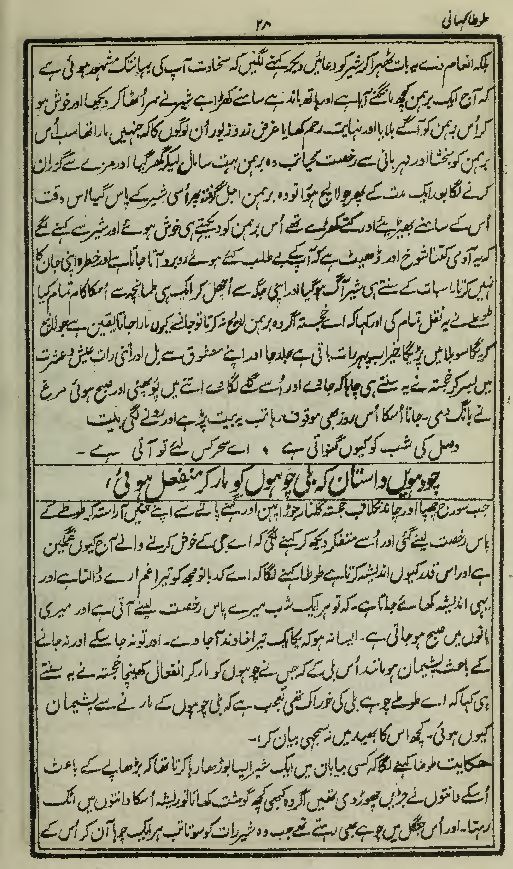 طوطا کہانی
۲۸
بلکہ انعام دے یہ بات ٹھہرا کر شیر کو دعائیں دیکر کہنے لگیں کہ سخاوت آپ کی یہانتک مشہور ہوئی ہے
کہ آج ایک برہمن کچھ مانگنے آیا ہے اور ہاتھ باندہے سامنے کھڑا ہے شیر نے سر اٹھا کر دیکھا اور خوش ہو
کر اُس برہمن کو آگے بلایا اور نہایت رحم کھایا غرض زر و زیور اُن لوگوں کا کہ جنہیں مارا تھا سب اُس
برہمن کو بخشا اور مہربانی سے رخصت کیا تب وہ برہمن بہت سا مال لیکر گھر گیا اور مزے سے گذران
کرنے لگا بعد ایک مدت کے پھر جو لالچ ہوا تو وہ برہمن اجل گرفتہ پھر اُسی شیر کے پاس گیا اس وقت
اُس کے سامنے بھیڑیئے اور کتے کھڑے تھے اُس برہمن کو دیکھتے ہی خوش ہوئے اور شیر سے کہنے لگے
کہ یہ آدمی کتنا شوخ اور ڈھیٹ ہے کہ آپ کے بے طلب کئے ہوئے روبرو آتا جاتا ہے اور خطرہ اپنی جان کا
نہیں کرتا۔ اس بات کے سنتے ہی شیر آگ ہو گیا اور اپنی جگہ سے اُچھل کر ایک ہی طمانچہ سے اُسکا کام تمام کیا
طوطے نے یہ نقل تمام کی اور کہا کہ اے خجستہ اگر وہ برہمن لالچ نہ کرتا تو جانے کیوں مارا جاتا یقین ہے جو لالچ
کریگا سو بلا میں پڑیگا خیر اب پہر رات باقی ہے جلد جا اور اپنے معشوق سے مل اور اتنی رات عیش و عشرت
میں بسر کر خجستہ نے یہ سنتے ہی چاہا کہ جاوے اور اُسے گلے لگاوے اتنے میں پَو پھٹی اور صبح ہوئی مرغ
نے بانگ دی۔ جانا اُسکا اُس روز بھی موقوف رہا تب یہ بیت پڑہے اور رونے لگی بیت
وصل کی شب کو کیوں گنواتی ہے ٭ اے سحر کس لئے تو آتی ہے ۔
چودہویں داستان کہ بلی چوہوں کو مار کر منفعل ہوئی،
جب سورج چھپا اور چاند نکلا تب خجستہ گلنار جوڑا پہن اور گہنے پاتے سے اپنے تئیں آراستہ کر طوطے کے
پاس رخصت لینے گئی اور اُسے متفکر دیکھ کر کہنے لگی کہ اے جی کے خوش کرنے والے آج کیوں غمگین
ہے اور اس قدر کیوں اندیشہ کرتا ہے طوطا کہنے لگا کہ اے کدبانو مجھ کو تیرا غم مارے ڈالتا ہے اور
یہی اندیشہ کھائے جاتا ہے۔ کہ تو ہر ایک شب میرے پاس رخصت لینے آتی ہے اور میری
باتوں میں صبح ہو جاتی ہے۔ ایسا نہ ہو کہ یکایک تیرا خاوند آ جاوے۔ اور تو نہ جا سکے اور نہ جانے
کے باعث پشیمان ہو مانند اُس بلی کے کہ جس نے چوہوں کو مار کر انفعال کھینچا خجستہ نے یہ سنتے
ہی کہا کہ اے طوطے چوہے بلی کی خوراک تھے تعجب ہے کہ بلی چوہوں کے مارنے سے پشیمان
کیوں ہوئی۔ کچھ اس کا بھید میں نہ سمجھی بیان کر۔
حکایت طوطا کہنے لگا کہ کسی بیابان میں ایک شیر ایسا بوڑھا رہا کرتا تھا کہ بڑھاپے کے باعث
اُسکے دانتوں نے جڑیں چھوڑ دی تھیں اگر وہ کبھی کچھ گوشت کھاتا تو ریشہ اُسکا دانتوں میں اٹک
رہتا۔ اور اُس جنگل میں چوہے بھی رہتے تھے جب وہ شیر رات کو سوتا تب ہر ایک چوہا آن کر اُس کے